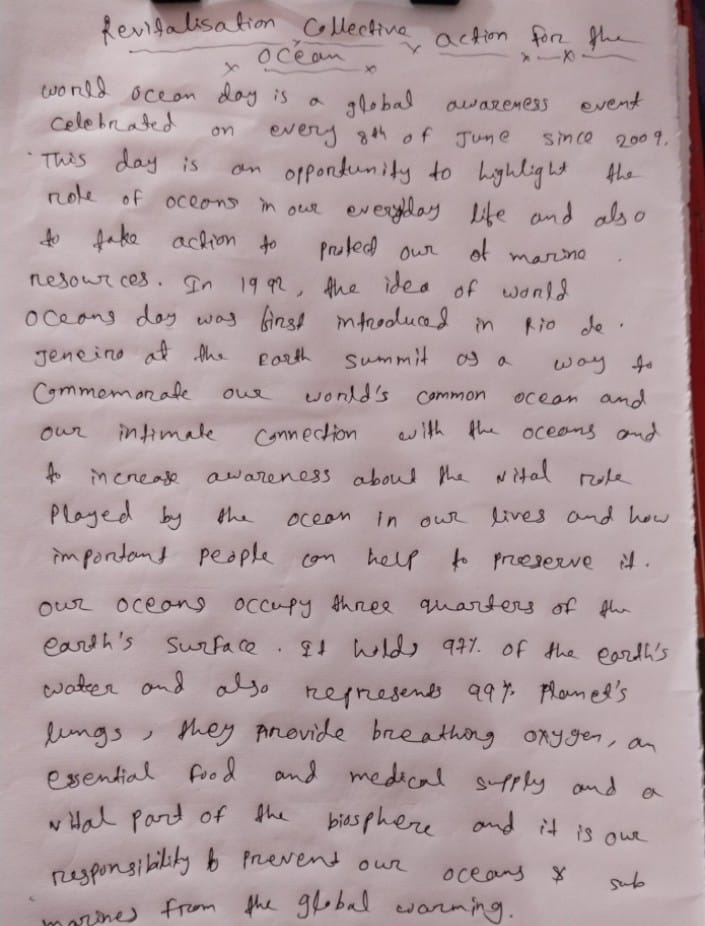 Revitalisation Collective action for the
ocean
world ocean day is a global awareness event
celebrated on every 8th of June since 2009.
This day is an opportunity to highlight the
role of oceans in our everyday life and also
to take action to protect our of marine
resources. In 1992, the idea of world
oceans day was first introduced in Rio de
Jeneiro at the Earth summit as a way to
Commemorate our world's common ocean and
our intimate connection with the oceans and
to increase awareness about the vital role
Played by the ocean in our lives and how
important people can help to preserve it.
our oceans occupy three quarters of the
earth's surface. It holds 97% of the earth's
water and also represents 99% Planet's
lungs, they provide breathing oxygen, an
essential food and medical supply and a
vital part of the biosphere and it is our
responsibility to prevent our oceans & sub
marines from the global warming.